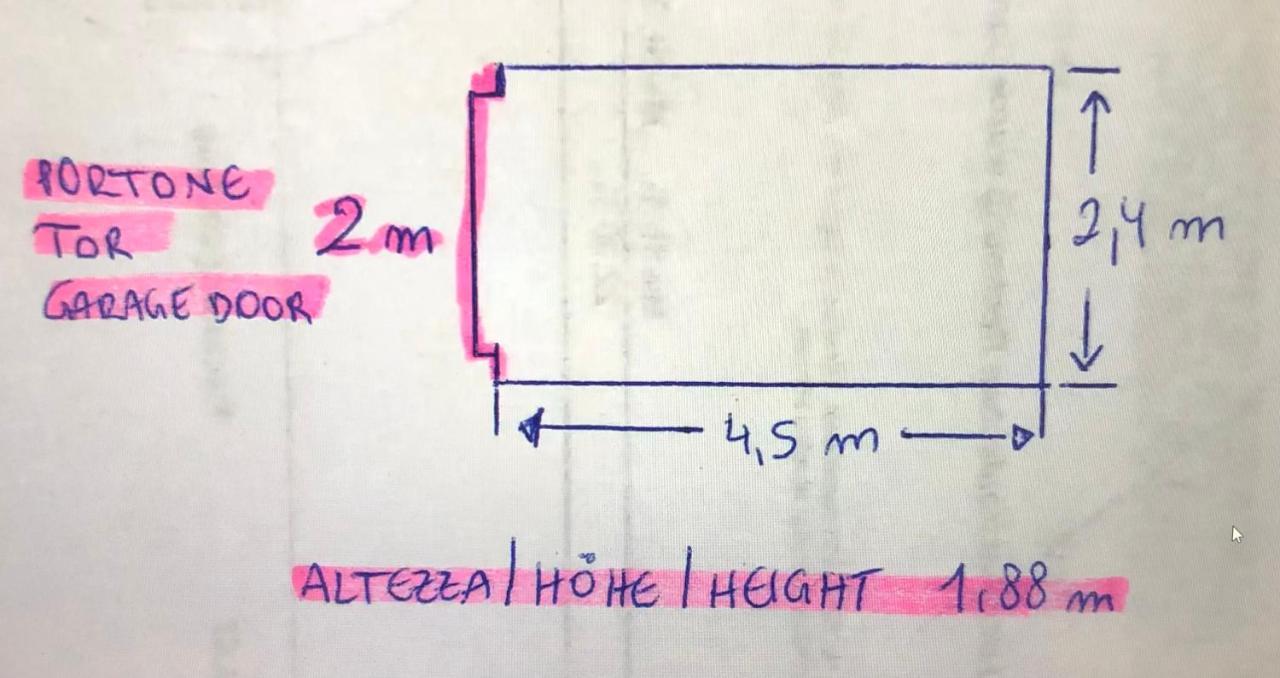 PORTONE
TOR
GARAGE DOOR
2 m
2,4 m
4,5 m
ALTEZZA/HÖHE/HEIGHT 1,88 m